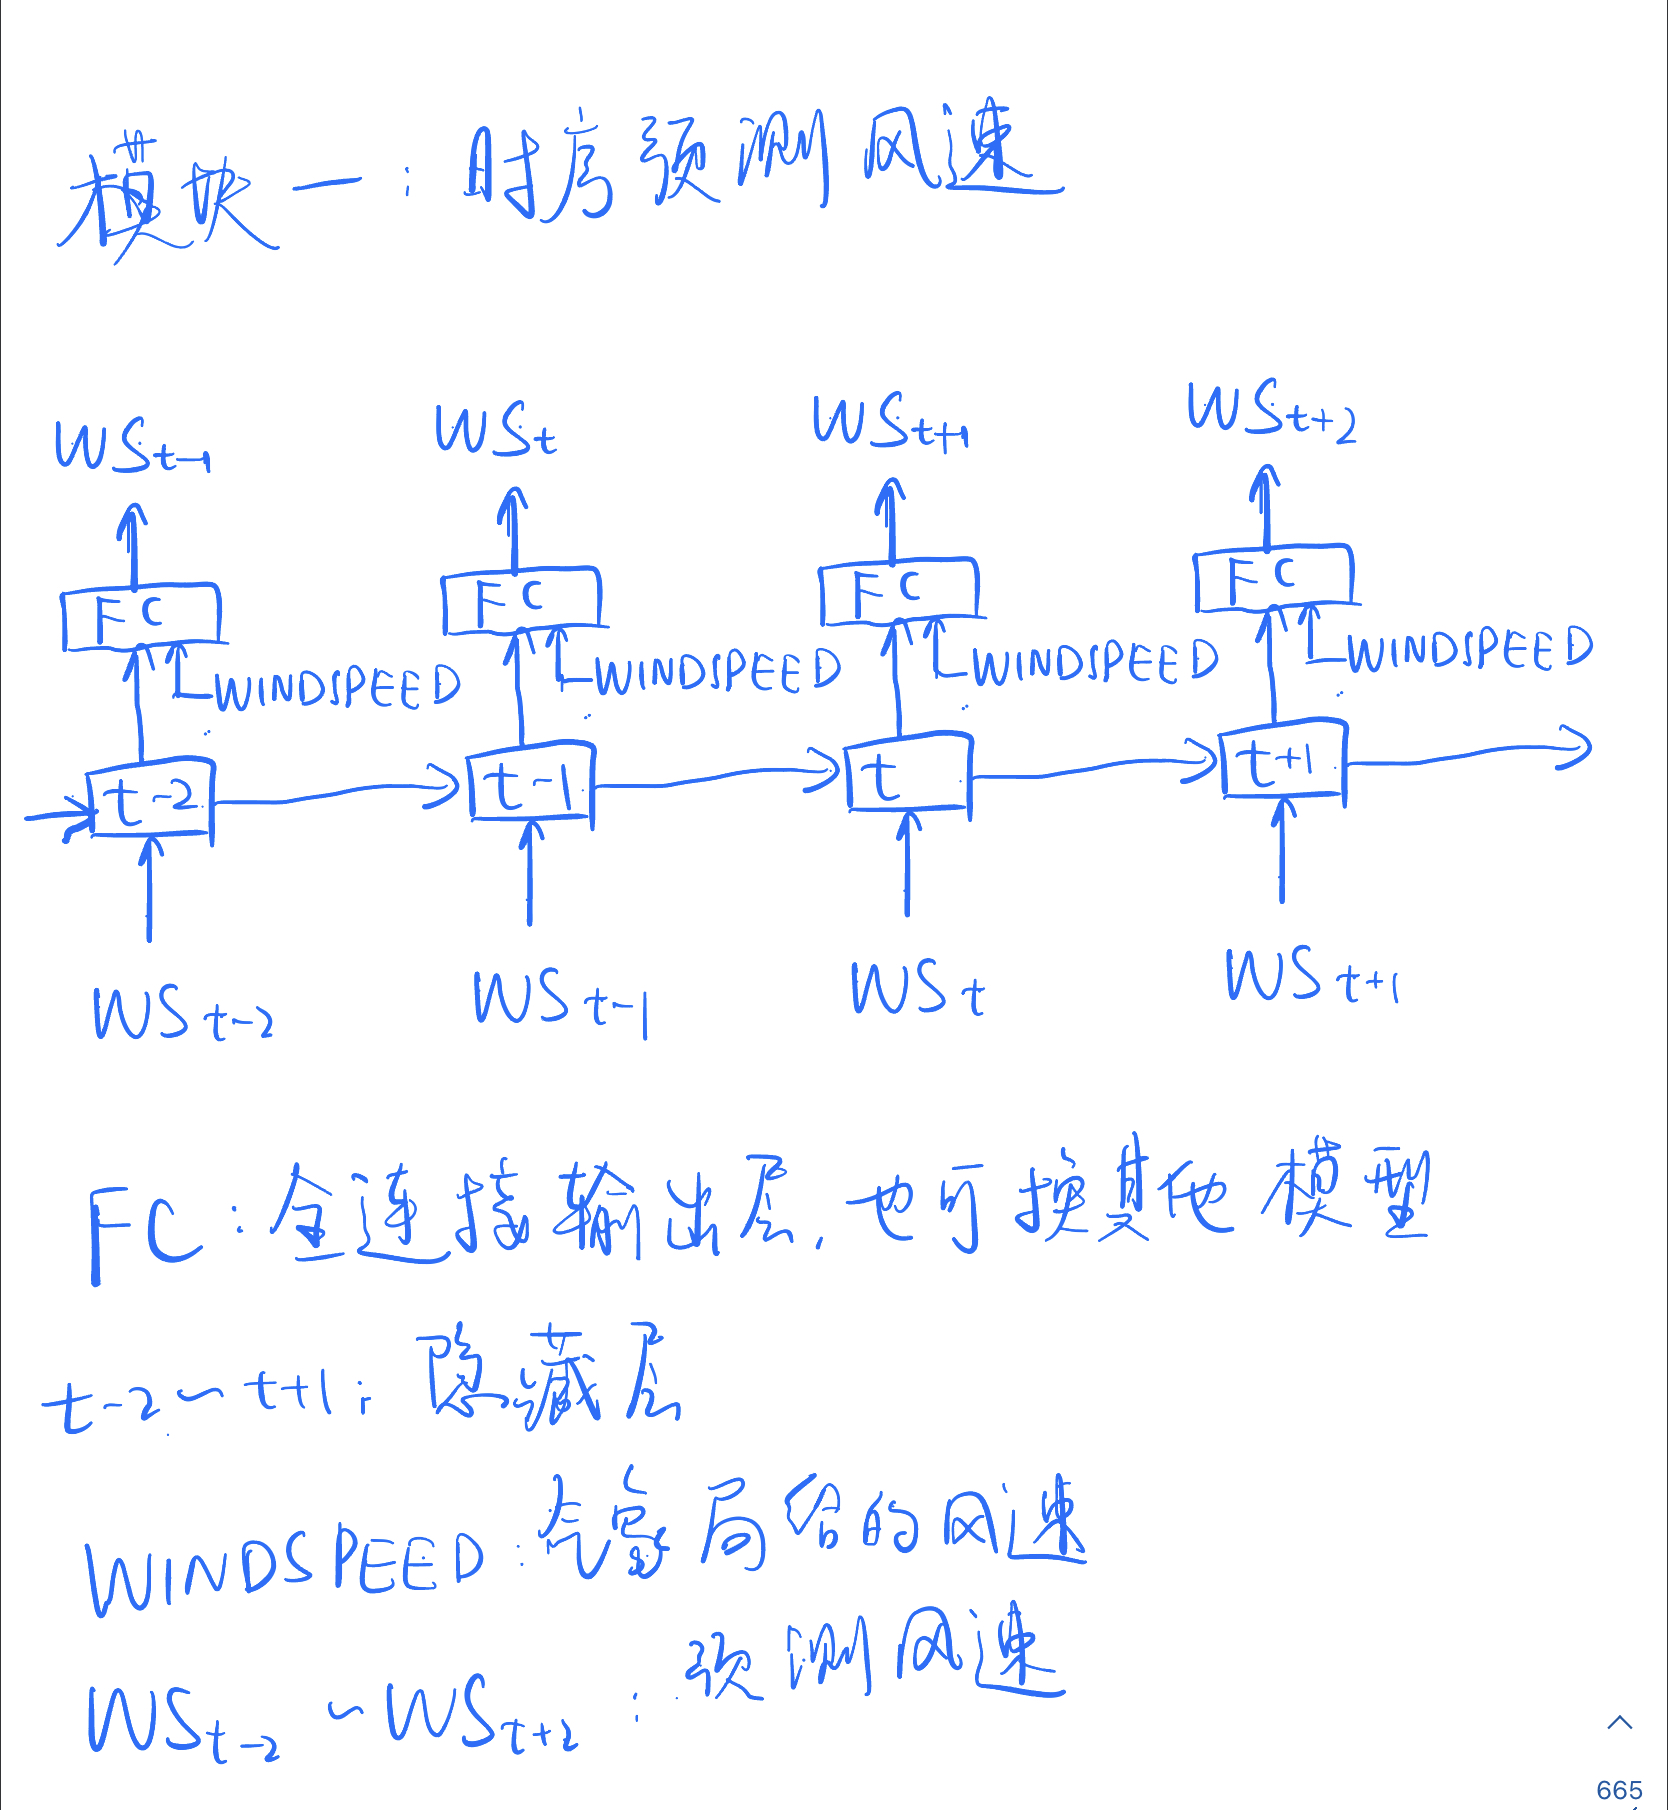 模块一：时序预测风速
WSt-1 WSt WSt+1 WSt+2
FC FC FC FC
WINDSPEED WINDSPEED WINDSPEED WINDSPEED
t-2 t-1 t t+1
WSt-2 WSt-1 WSt WSt+1
FC：全连接输出层，也可换其他模型
t-2~t+1：隐藏层
WINDSPEED：气象局给的风速
WSt-2~WSt+2：预测风速
665